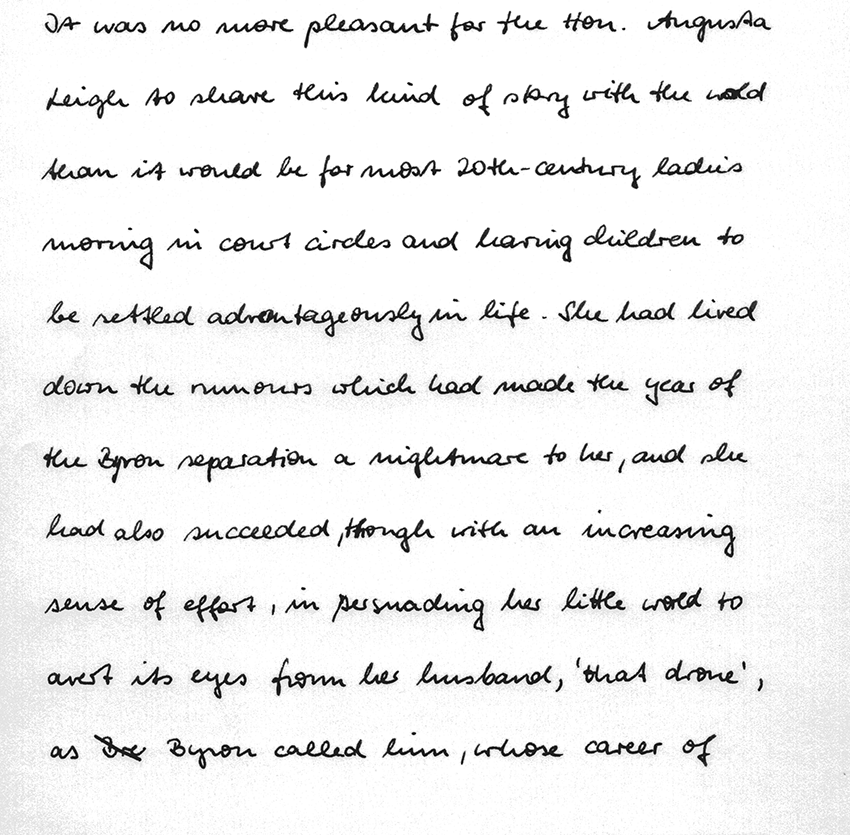 It was no more pleasant for the Hon. Augusta
Leigh to share this kind of story with the world
than it would be for most 20th-century ladies
moving in court circles and having children to
be settled advantageously in life. She had lived
down the rumours which had made the year of
the Byron separation a nightmare to her, and she
had also succeeded, though with an increasing
sense of effort, in persuading her little world to
avert its eyes from her husband, 'that drone',
as Byron called him, whose career of